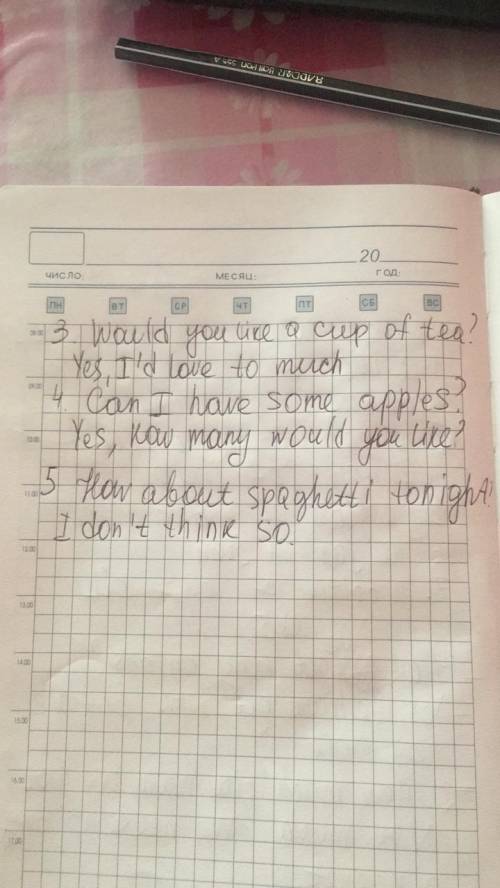 20
ЧИСЛО: МЕСЯЦ: ГОД:
ПН ВТ СР ЧТ ПТ СБ ВС
3. Would you like a cup of tea?
Yes, I'd love to much
4. Can I have some apples?
Yes, how many would you like?
5 How about spaghetti tonight?
I don't think so.
09.00
10.00
11.00
12.00
13.00
14.00
15.00
16.00
17.00